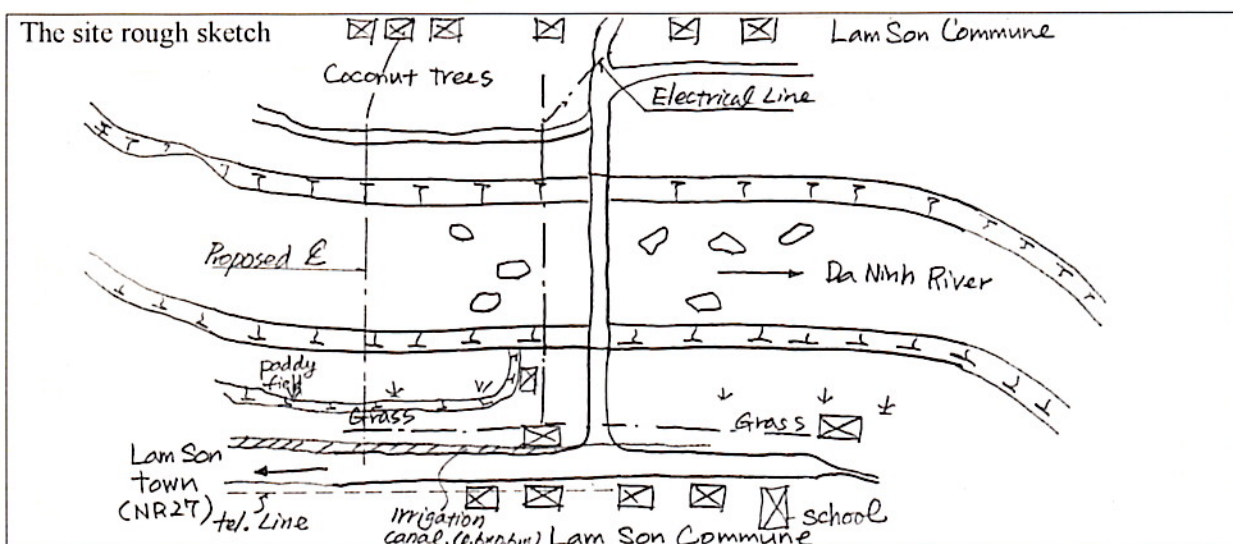 The site rough sketch
Lam Son Commune
Coconut trees
Electrical Line
Proposed ℄
Da Ninh River
paddy
field
Grass
Grass
Lam Son
Town
(NR27)
tel. Line
Irrigation
canal. (0.6m×0.6m)
Lam Son Commune
school